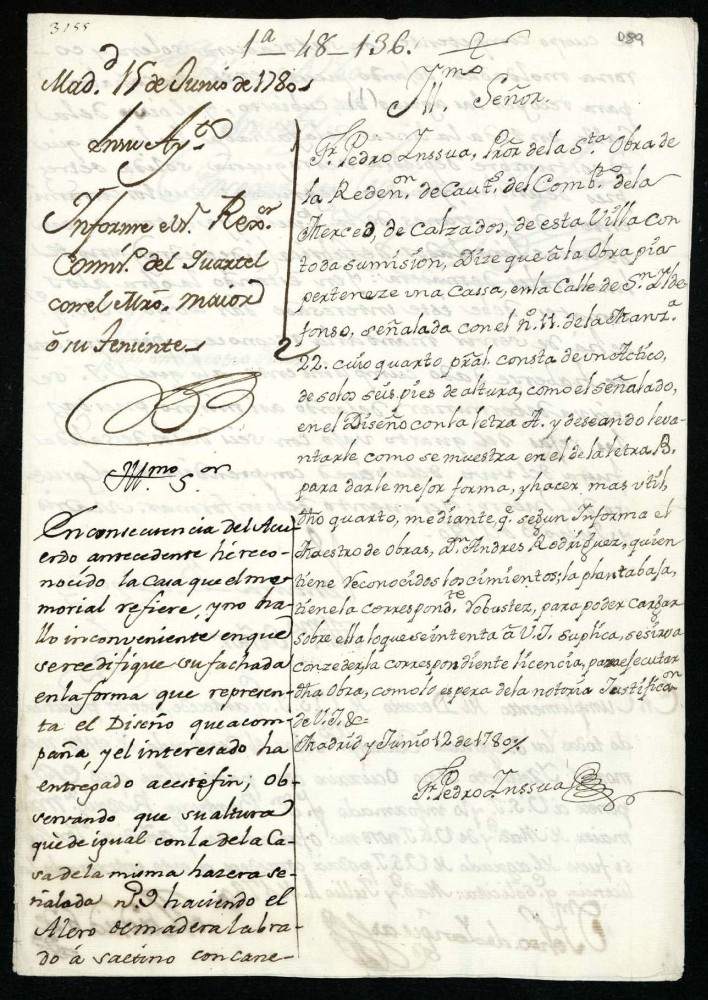 3155
059
1ª-48-136.
Madd. 15 de Junio de 1780
En su Aytº
Informe el Sr. Rexor.
Comisº. del Quartel
con el Mro. maior
ô su Theniente
Yllmo Sor
En consecuencia del Acu-
erdo antecedente hé reco-
nocido la Casa que el me-
morial refiere, y no ha-
llo inconveniente en que
se reedifique su fachada
en la forma que represen-
ta el Diseño que acom-
paña, y el interesado ha
entregado a este fin; Ob-
servando que su altura
quède igual con la de la Ca-
sa de la misma hazera se-
ñalada nº. 9 haciendo el
Alero de madera labra-
do á saetino con cane-
Yllmo. Señor.
Fr. Pedro Inssua, Pror de la Sta. Obra de
la Redenon. de Cauts. del Combto. de la
Merced, de Calzados, de esta Villa con
toda sumision, Dize que â la Obra pia
perteneze una Cassa, en la Calle de Sn. Ylde
fonso, señalada con el nº. 11. de la Manzª.
22. cuio quarto pral. consta de un Actico,
de solos seis pies de altura, como el señalado,
en el Diseño con la letra A. y deseando leva-
ntarle como se muestra en el de la letra B.
para darle mejor forma, y hacer mas util,
dho quarto, mediante, qe. segun Informa el
Maestro de Obras, Dn. Andres Rodriguez, quien
tiene reconocidos los cimientos; la planta baja,
tiene la correspondte. robustez, para poder cargar
sobre ella lo que se intenta â V.I. suplica, se sirva
conzeder, la correspondiente licencia, para executar
dha Obra, como lo espera de la notoria Justificaon
de V.I. &=
Madrid y Junio 12 de 1780
Fr. Pedro Inssua